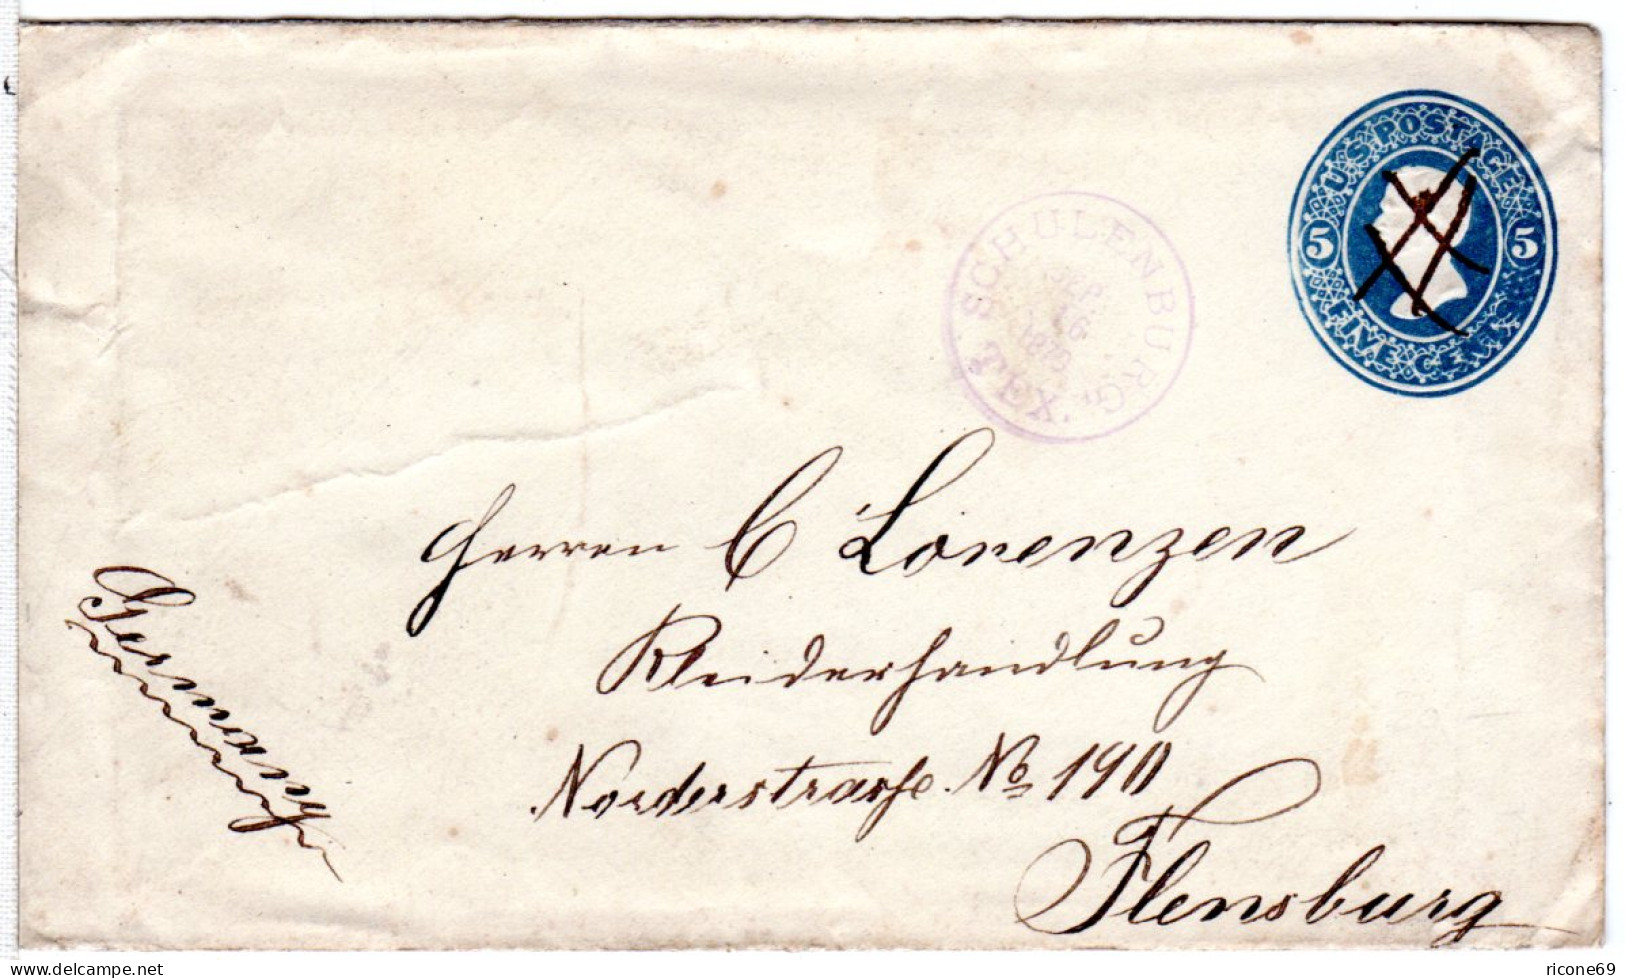 U.S. POSTAGE
5 5
FIVE CENTS
SCHULENBURG.
SEP
16
1879
TEX.
Herren C Lorenzen
Kleiderhandlung
Norderstrasse No 190
Flensburg
Germany
delcampe.net
ricone69